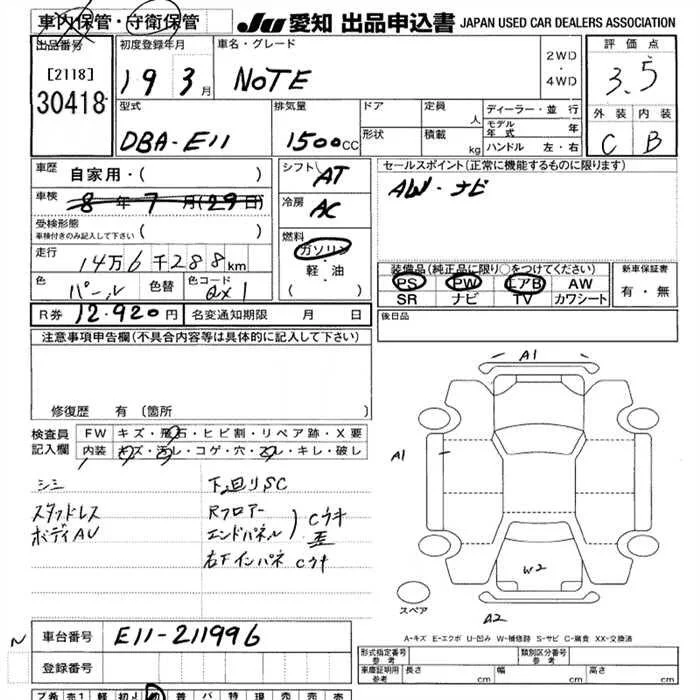 車内保管・守衛保管 JU 愛知 出品申込書 JAPAN USED CAR DEALERS ASSOCIATION
出品番号 初度登録年月 車名・グレード 2WD・4WD 評価点
[2118] 30418 19 3月 NOTE 3.5
型式 排気量 ドア 定員 人 ディーラー・並行 外装 内装
DBA-E11 1500cc 形状 積載 kg モデル年式 年 C B
ハンドル 左・右
車歴 自家用・( ) シフト AT セールスポイント(正常に機能するものに限ります)
車検 8年7月(29日) 冷房 AC AW・ナビ
受検形態 ( )
車検付きのみ記入して下さい
走行 14万6千288km 燃料 ガソリン・軽・油 ( )
色 パール 色替 色コード QX1
装備品(純正品に限り○をつけてください) 新車保証書
PS PW エアB AW 有・無
SR ナビ TV カワシート
R券 12,920円 名変通知期限 月 日 後日品
注意事項申告欄(不具合内容等は具体的に記入して下さい)
修復歴 有(箇所 )
検査員記入欄 FW キズ・飛石・ヒビ割・リペア跡・X要
内装 キズ・汚レ・コゲ・穴・スレ・キレ・破レ
シミ 下回りSC
スタッドレス Rフロアー
ボディAU エンドパネル Cウキ 歪
右下インパネ Cウキ
A1
A1
W2
A2
スペア
A-キズ E-エクボ U-凹み W-補修跡 S-サビ C-腐食 XX-交換済
車台番号 E11-211996
N
登録番号
形式指定番号 参考 類別区分番号 参考
車庫証明用 参考 長さ cm 幅 cm 高さ cm